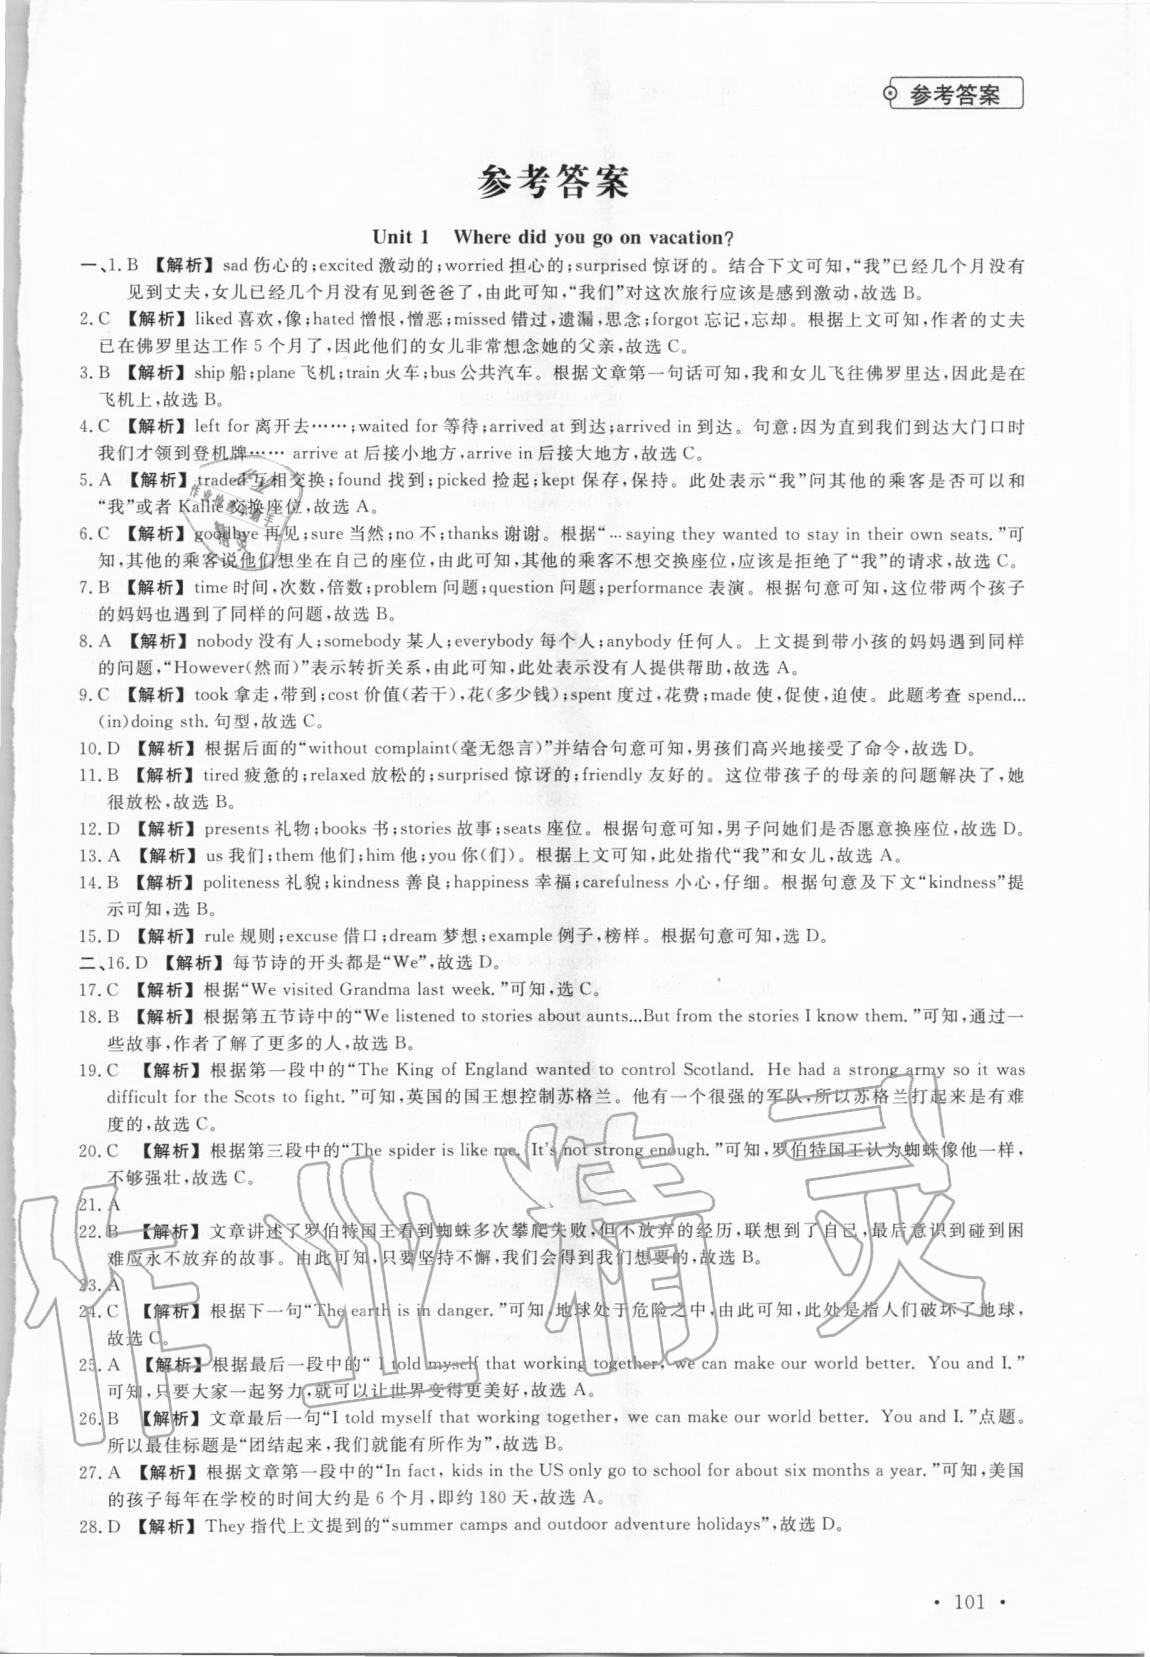 参考答案
参考答案
Unit 1 Where did you go on vacation?
一、1. B 【解析】sad 伤心的;excited 激动的;worried 担心的;surprised 惊讶的。结合下文可知,“我”已经几个月没有
见到丈夫,女儿已经几个月没有见到爸爸了,由此可知,“我们”对这次旅行应该是感到激动,故选 B。
2. C 【解析】liked 喜欢,像;hated 憎恨,憎恶;missed 错过,遗漏,思念;forgot 忘记,忘却。根据上文可知,作者的丈夫
已在佛罗里达工作 5 个月了,因此他们的女儿非常想念她的父亲,故选 C。
3. B 【解析】ship 船;plane 飞机;train 火车;bus 公共汽车。根据文章第一句话可知,我和女儿飞往佛罗里达,因此是在
飞机上,故选 B。
4. C 【解析】left for 离开去……;waited for 等待;arrived at 到达;arrived in 到达。句意:因为直到我们到达大门口时
我们才领到登机牌…… arrive at 后接小地方,arrive in 后接大地方,故选 C。
5. A 【解析】traded 互相交换;found 找到;picked 捡起;kept 保存,保持。此处表示“我”问其他的乘客是否可以和
“我”或者 Kallie 交换座位,故选 A。
6. C 【解析】goodbye 再见;sure 当然;no 不;thanks 谢谢。根据“… saying they wanted to stay in their own seats.”可
知,其他的乘客说他们想坐在自己的座位,由此可知,其他的乘客不想交换座位,应该是拒绝了“我”的请求,故选 C。
7. B 【解析】time 时间,次数,倍数;problem 问题;question 问题;performance 表演。根据句意可知,这位带两个孩子
的妈妈也遇到了同样的问题,故选 B。
8. A 【解析】nobody 没有人;somebody 某人;everybody 每个人;anybody 任何人。上文提到带小孩的妈妈遇到同样
的问题,“However(然而)”表示转折关系,由此可知,此处表示没有人提供帮助,故选 A。
9. C 【解析】took 拿走,带到;cost 价值(若干),花(多少钱);spent 度过,花费;made 使,促使,迫使。此题考查 spend...
(in)doing sth. 句型,故选 C。
10. D 【解析】根据后面的“without complaint(毫无怨言)”并结合句意可知,男孩们高兴地接受了命令,故选 D。
11. B 【解析】tired 疲惫的;relaxed 放松的;surprised 惊讶的;friendly 友好的。这位带孩子的母亲的问题解决了,她
很放松,故选 B。
12. D 【解析】presents 礼物;books 书;stories 故事;seats 座位。根据句意可知,男子问她们是否愿意换座位,故选 D。
13. A 【解析】us 我们;them 他们;him 他;you 你(们)。根据上文可知,此处指代“我”和女儿,故选 A。
14. B 【解析】politeness 礼貌;kindness 善良;happiness 幸福;carefulness 小心,仔细。根据句意及下文“kindness”提
示可知,选 B。
15. D 【解析】rule 规则;excuse 借口;dream 梦想;example 例子,榜样。根据句意可知,选 D。
二、16. D 【解析】每节诗的开头都是“We”,故选 D。
17. C 【解析】根据“We visited Grandma last week.”可知,选 C。
18. B 【解析】根据第五节诗中的“We listened to stories about aunts...But from the stories I know them.”可知,通过一
些故事,作者了解了更多的人,故选 B。
19. C 【解析】根据第一段中的“The King of England wanted to control Scotland. He had a strong army so it was
difficult for the Scots to fight.”可知,英国的国王想控制苏格兰。他有一个很强的军队,所以苏格兰打起来是有难
度的,故选 C。
20. C 【解析】根据第三段中的“The spider is like me. It's not strong enough.”可知,罗伯特国王认为蜘蛛像他一样,
不够强壮,故选 C。
21. A
22. B 【解析】文章讲述了罗伯特国王看到蜘蛛多次攀爬失败,但不放弃的经历,联想到了自己,最后意识到碰到困
难应永不放弃的故事。由此可知,只要坚持不懈,我们会得到我们想要的,故选 B。
23. A
24. C 【解析】根据下一句“The earth is in danger.”可知,地球处于危险之中,由此可知,此处是指人们破坏了地球,
故选 C。
25. A 【解析】根据最后一段中的“ I told myself that working together, we can make our world better. You and I.”
可知,只要大家一起努力,就可以让世界变得更美好,故选 A。
26. B 【解析】文章最后一句“I told myself that working together, we can make our world better. You and I.”点题。
所以最佳标题是“团结起来,我们就能有所作为”,故选 B。
27. A 【解析】根据文章第一段中的“In fact, kids in the US only go to school for about six months a year.”可知,美国
的孩子每年在学校的时间大约是 6 个月,即约 180 天,故选 A。
28. D 【解析】They 指代上文提到的“summer camps and outdoor adventure holidays”,故选 D。
作业精灵
• 101 •